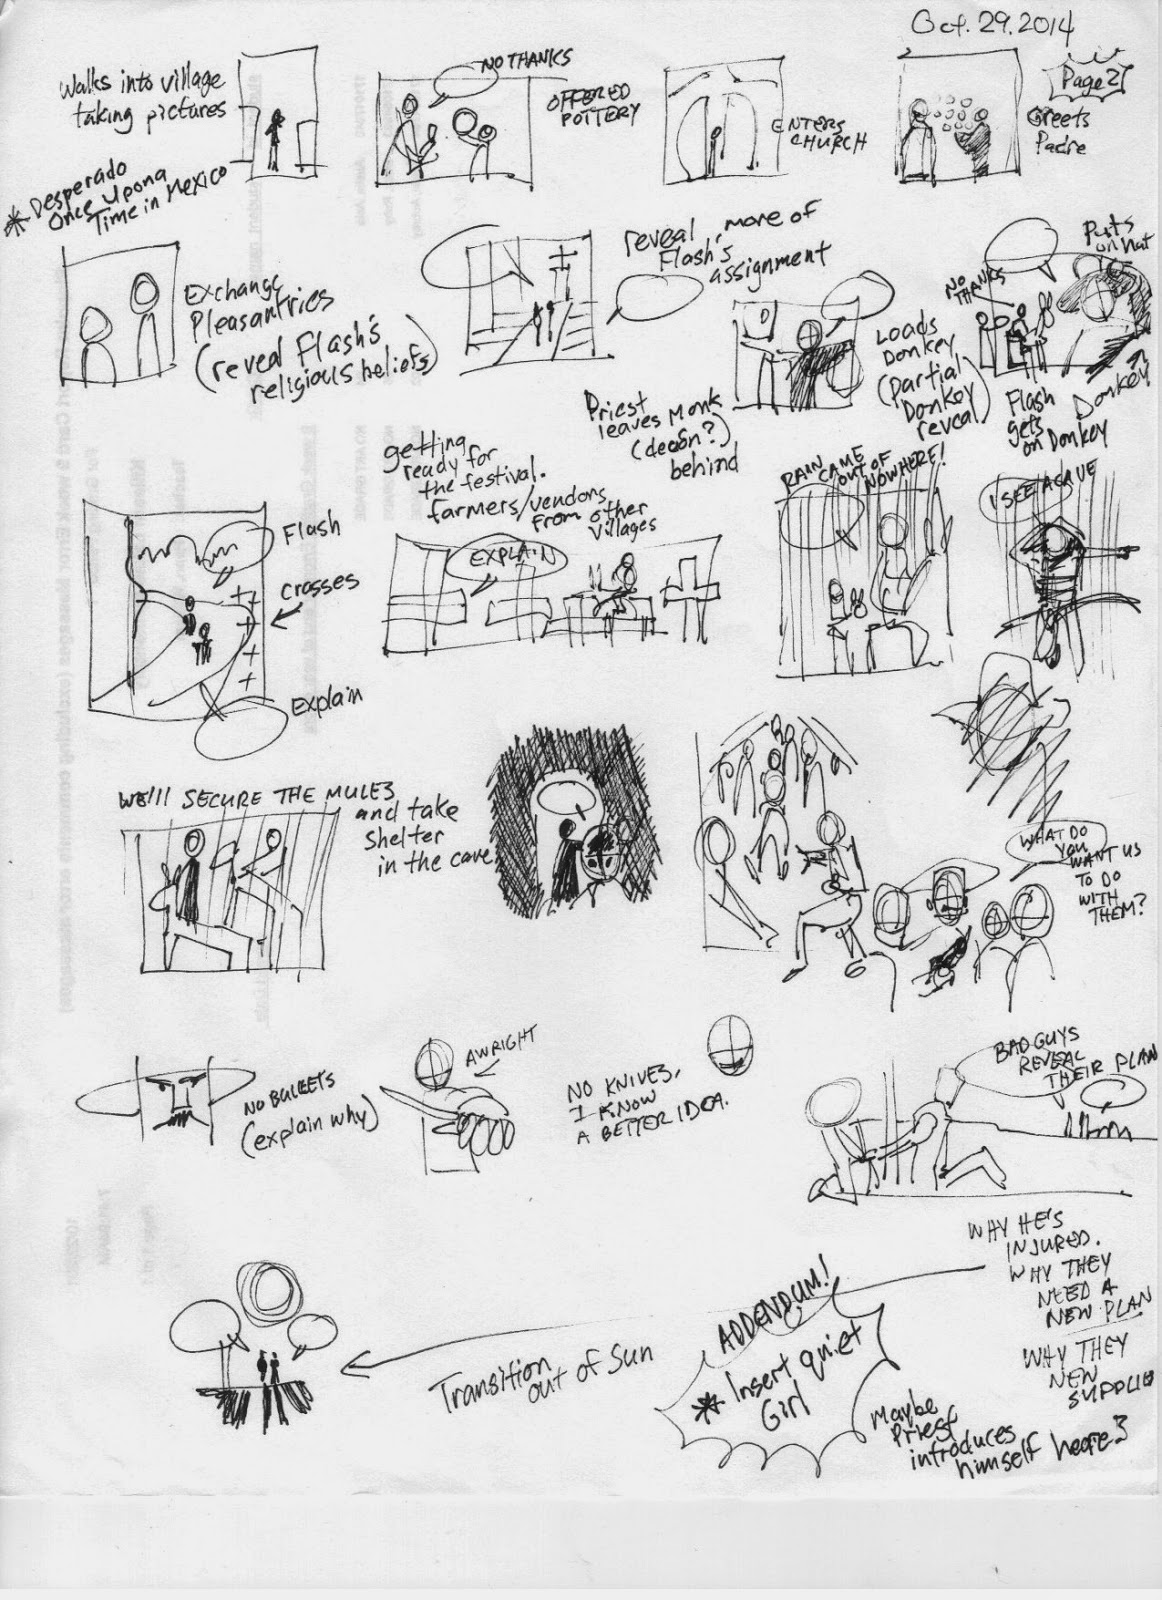 Oct. 29. 2014
Page 2
Walks into village
taking pictures
* Desperado
Once Upon a
Time in Mexico
NO THANKS
OFFERED
POTTERY
ENTERS
CHURCH
Greets
Padre
Exchange
Pleasantries
(reveal Flash's
religious beliefs)
reveal more of
Flash's
assignment
Priest
leaves Monk
(decon?)
behind
Loads
Donkey
(partial
Donkey
reveal)
NO
THANKS
Puts
on hat
Flash
gets
on Donkey
Donkey
Flash
crosses
Explain
getting
ready for
the festival.
farmers/vendors
from other
villages
EXPLAIN
RAIN CAME
OUT OF
NOWHERE!
I SEE A CAVE
WE'LL SECURE THE MULES
and take
shelter
in the cave
WHAT DO
YOU
WANT US
TO DO
WITH
THEM?
NO BULLETS
(explain why)
AWRIGHT
NO KNIVES,
I KNOW
A BETTER IDEA.
BAD GUYS
REVEAL
THEIR PLAN
WHY HE'S
INJURED.
WHY THEY
NEED A
NEW PLAN
WHY THEY
NEW
SUPPLIES
Transition
out of Sun
ADDENDUM!
* Insert quiet
Girl
Maybe
Priest
introduces
himself here?